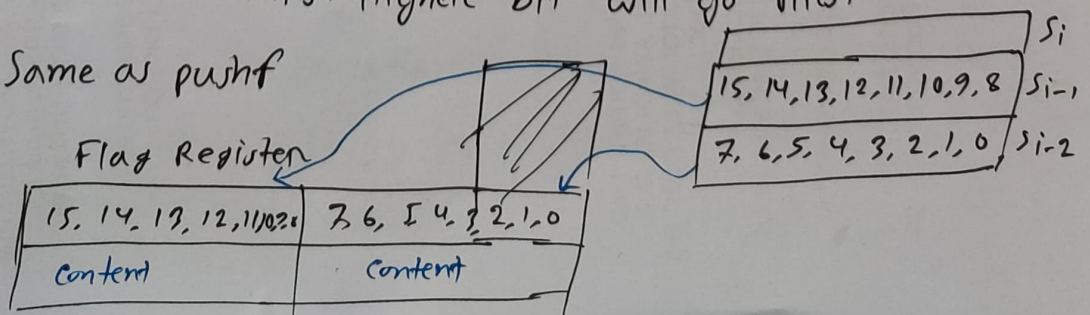 higher bit will go
Si
Same as pushf
15, 14, 13, 12, 11, 10, 9, 8 Si-1
7, 6, 5, 4, 3, 2, 1, 0 Si-2
Flag Register
15, 14, 13, 12, 11, 10, 9, 8 7, 6, 5 4, 3, 2, 1, 0
Content Content